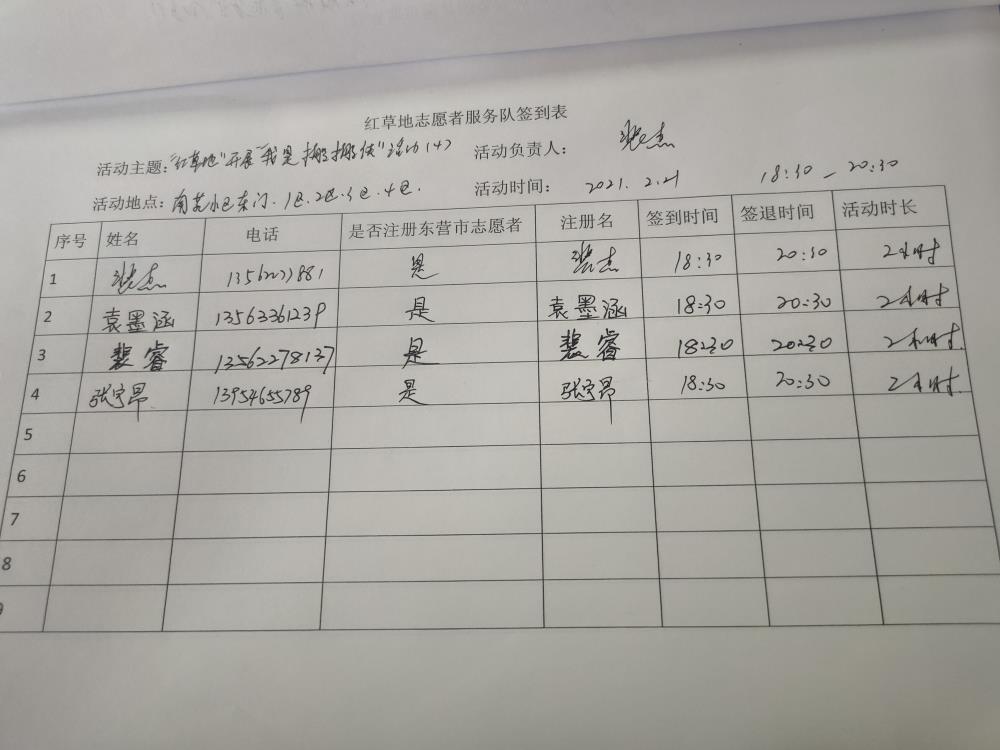 红草地志愿者服务队签到表
活动主题：“红草地”开展“我是挪挪侠”活动(4) 活动负责人： 张杰
活动地点： 南苑小区东门、1区、2区、3区、4区. 活动时间： 2021.2.21 18:30—20:30
序号 姓名 电话 是否注册东营市志愿者 注册名 签到时间 签退时间 活动时长
1 张杰 是 张杰 18:30 20:30 2小时
2 袁墨涵 13563361239 是 袁墨涵 18:30 20:30 2小时
3 裴睿 13562278137 是 裴睿 18:30 20:30 2小时.
4 张宇昂 13954655789 是 张宇昂 18:30 20:30 2小时.
5
6
7
8